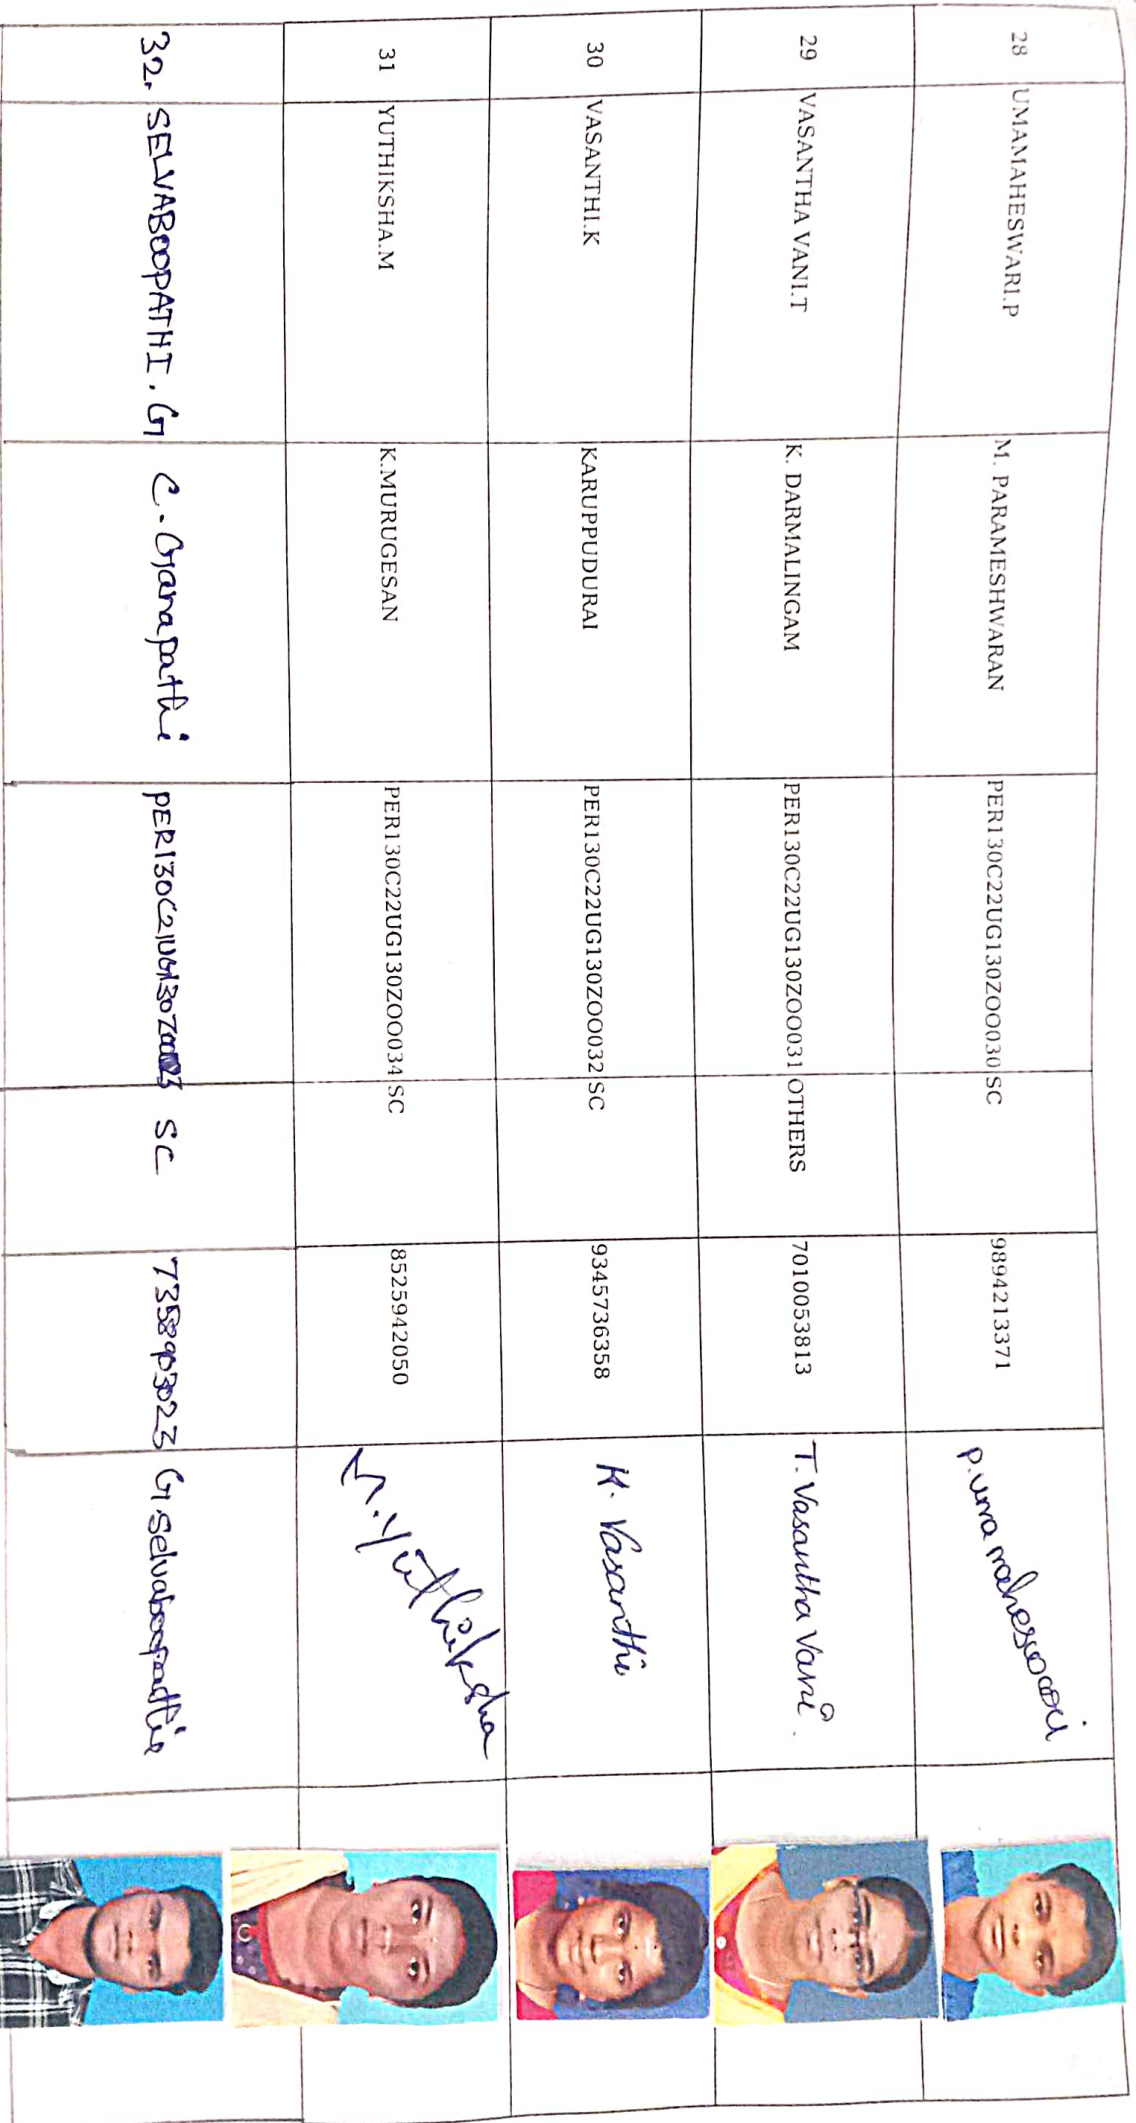 28 UMAMAHESWARI.P M. PARAMESHWARAN PER130C22UG130ZOO030 SC 9894213371 P. uma maheswari
29 VASANTHA VANI.T K. DARMALINGAM PER130C22UG130ZOO031 OTHERS 7010053813 T. Vasantha Vani.
30 VASANTHI.K KARUPPUDURAI PER130C22UG130ZOO032 SC 9345736358 K. Vasanthi
31 YUTHIKSHA.M K.MURUGESAN PER130C22UG130ZOO034 SC 8525942050 M. Yuthiksha
32. SELVABOOPATHI. G C. Ganapathi SC 7358903023 G. Selvaboopathi